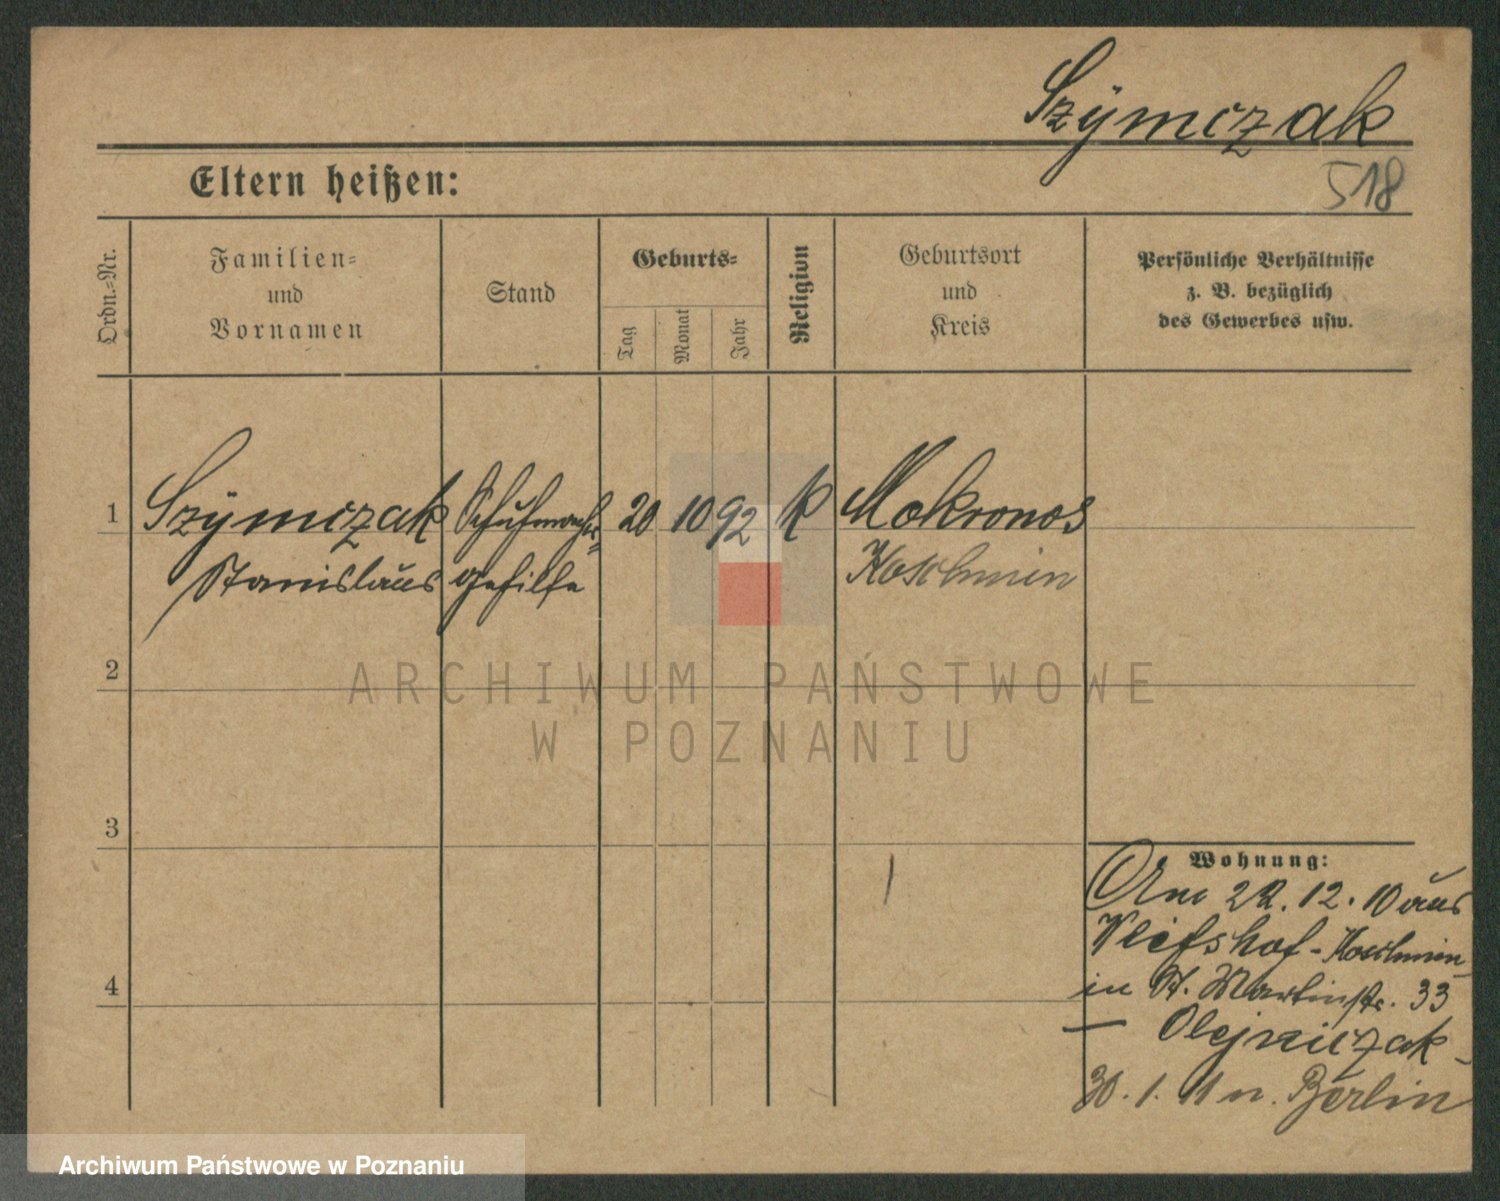 Szÿmczak
518
Eltern heißen:
Ordn.-Nr.
Familien-
und
Vornamen
Stand
Geburts-
Tag
Monat
Jahr
Religion
Geburtsort
und
Kreis
Persönliche Verhältnisse
z. B. bezüglich
des Gewerbes usw.
1 Szÿmczak Schuhmacher- 20 10 92 k Mokronos
Stanislaus gehilfe Koschmin
2
3
4
Wohnung:
Am 22. 12. 10 aus
-Koschmin
in St. Martinstr. 33
— Olejniczak -
30. 1. 11 n. Berlin
ARCHIWUM PAŃSTWOWE
W POZNANIU
Archiwum Państwowe w Poznaniu